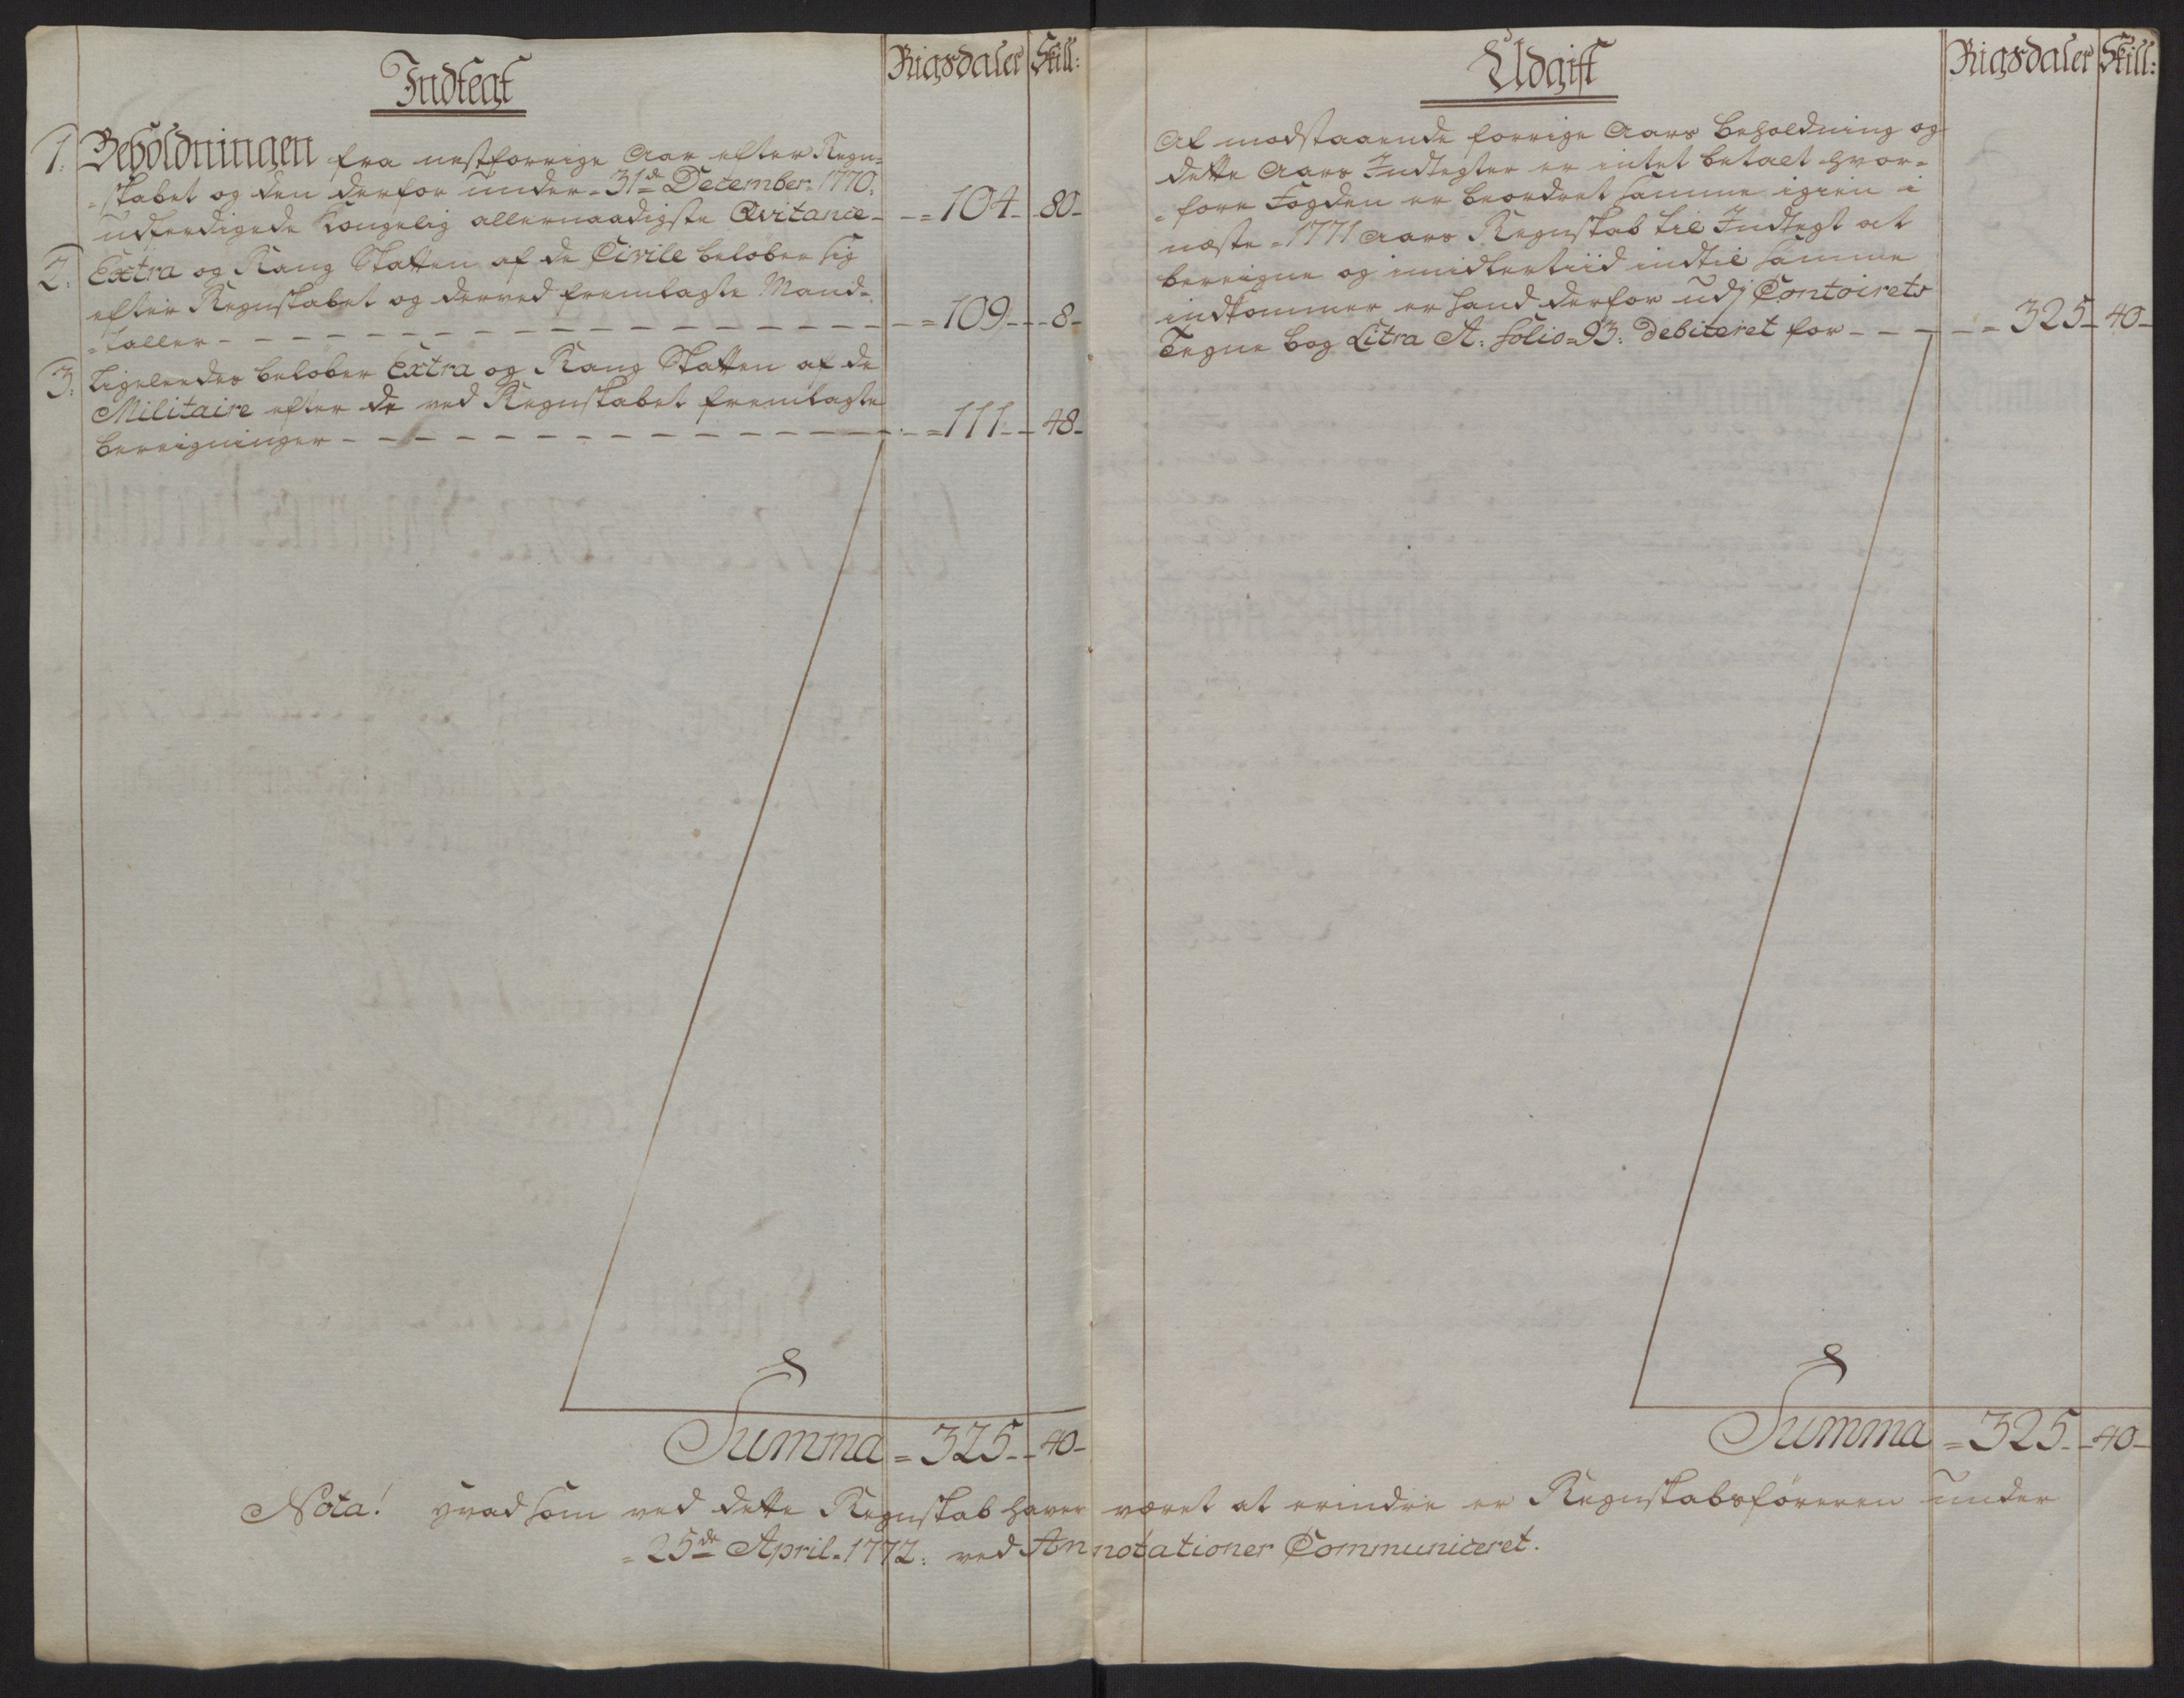 Indtegt
Rigsdaler
Skill:
1. Beholdningen fra nestforrige Aar efter Regn=
=skabet og den derfor under = 31de December = 1770:
udferdigede Kongelig allernaadigste Qvitance - - = 104 - 80 -
2. Extra og Rang Skatten af de Civile beløber sig
efter Regnskabet og derved fremlagte Mand=
=taller - - - = 109 - - 8 -
3. Ligeleedes beløber Extra og Rang Skatten af de
Militaire efter de ved Regnskabet fremlagte
bereigninger - - - = 111 - - 48 -
Summa = 325 - - 40 -
Udgift
Rigsdaler
Skill:
Af modstaaende forrige Aars Beholdning og
dette Aars Indtegter er intet betalt hvor=
=fore Fogden er beordret samme igien i
næste = 1771 Aars Regnskab til Indtegt at
bereigne og imidlertiid indtil samme
indkommer er hand derfor udj Contoirets
Tegne bog Litra A: folio = 93: debiteret for - - - = 325 - 40 -
Summa = 325 - - 40 -
Nota! hvad som ved dette Regnskab haver været at erindre er Regnskabsføreren under
= 25de April = 1772: ved Annotationer Communiceret.